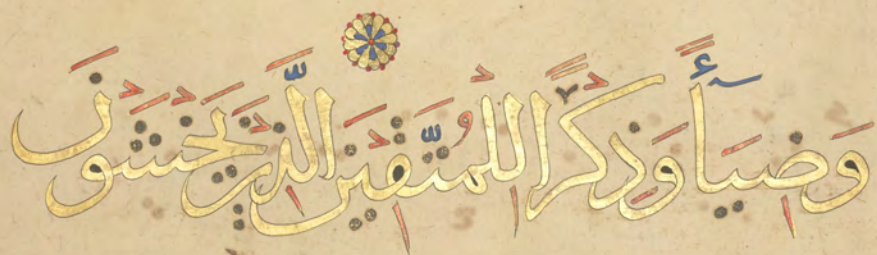 وَضِيَآءً وَذِكْرًا لِّلْمُتَّقِينَ الَّذِينَ يَخْشَوْنَ